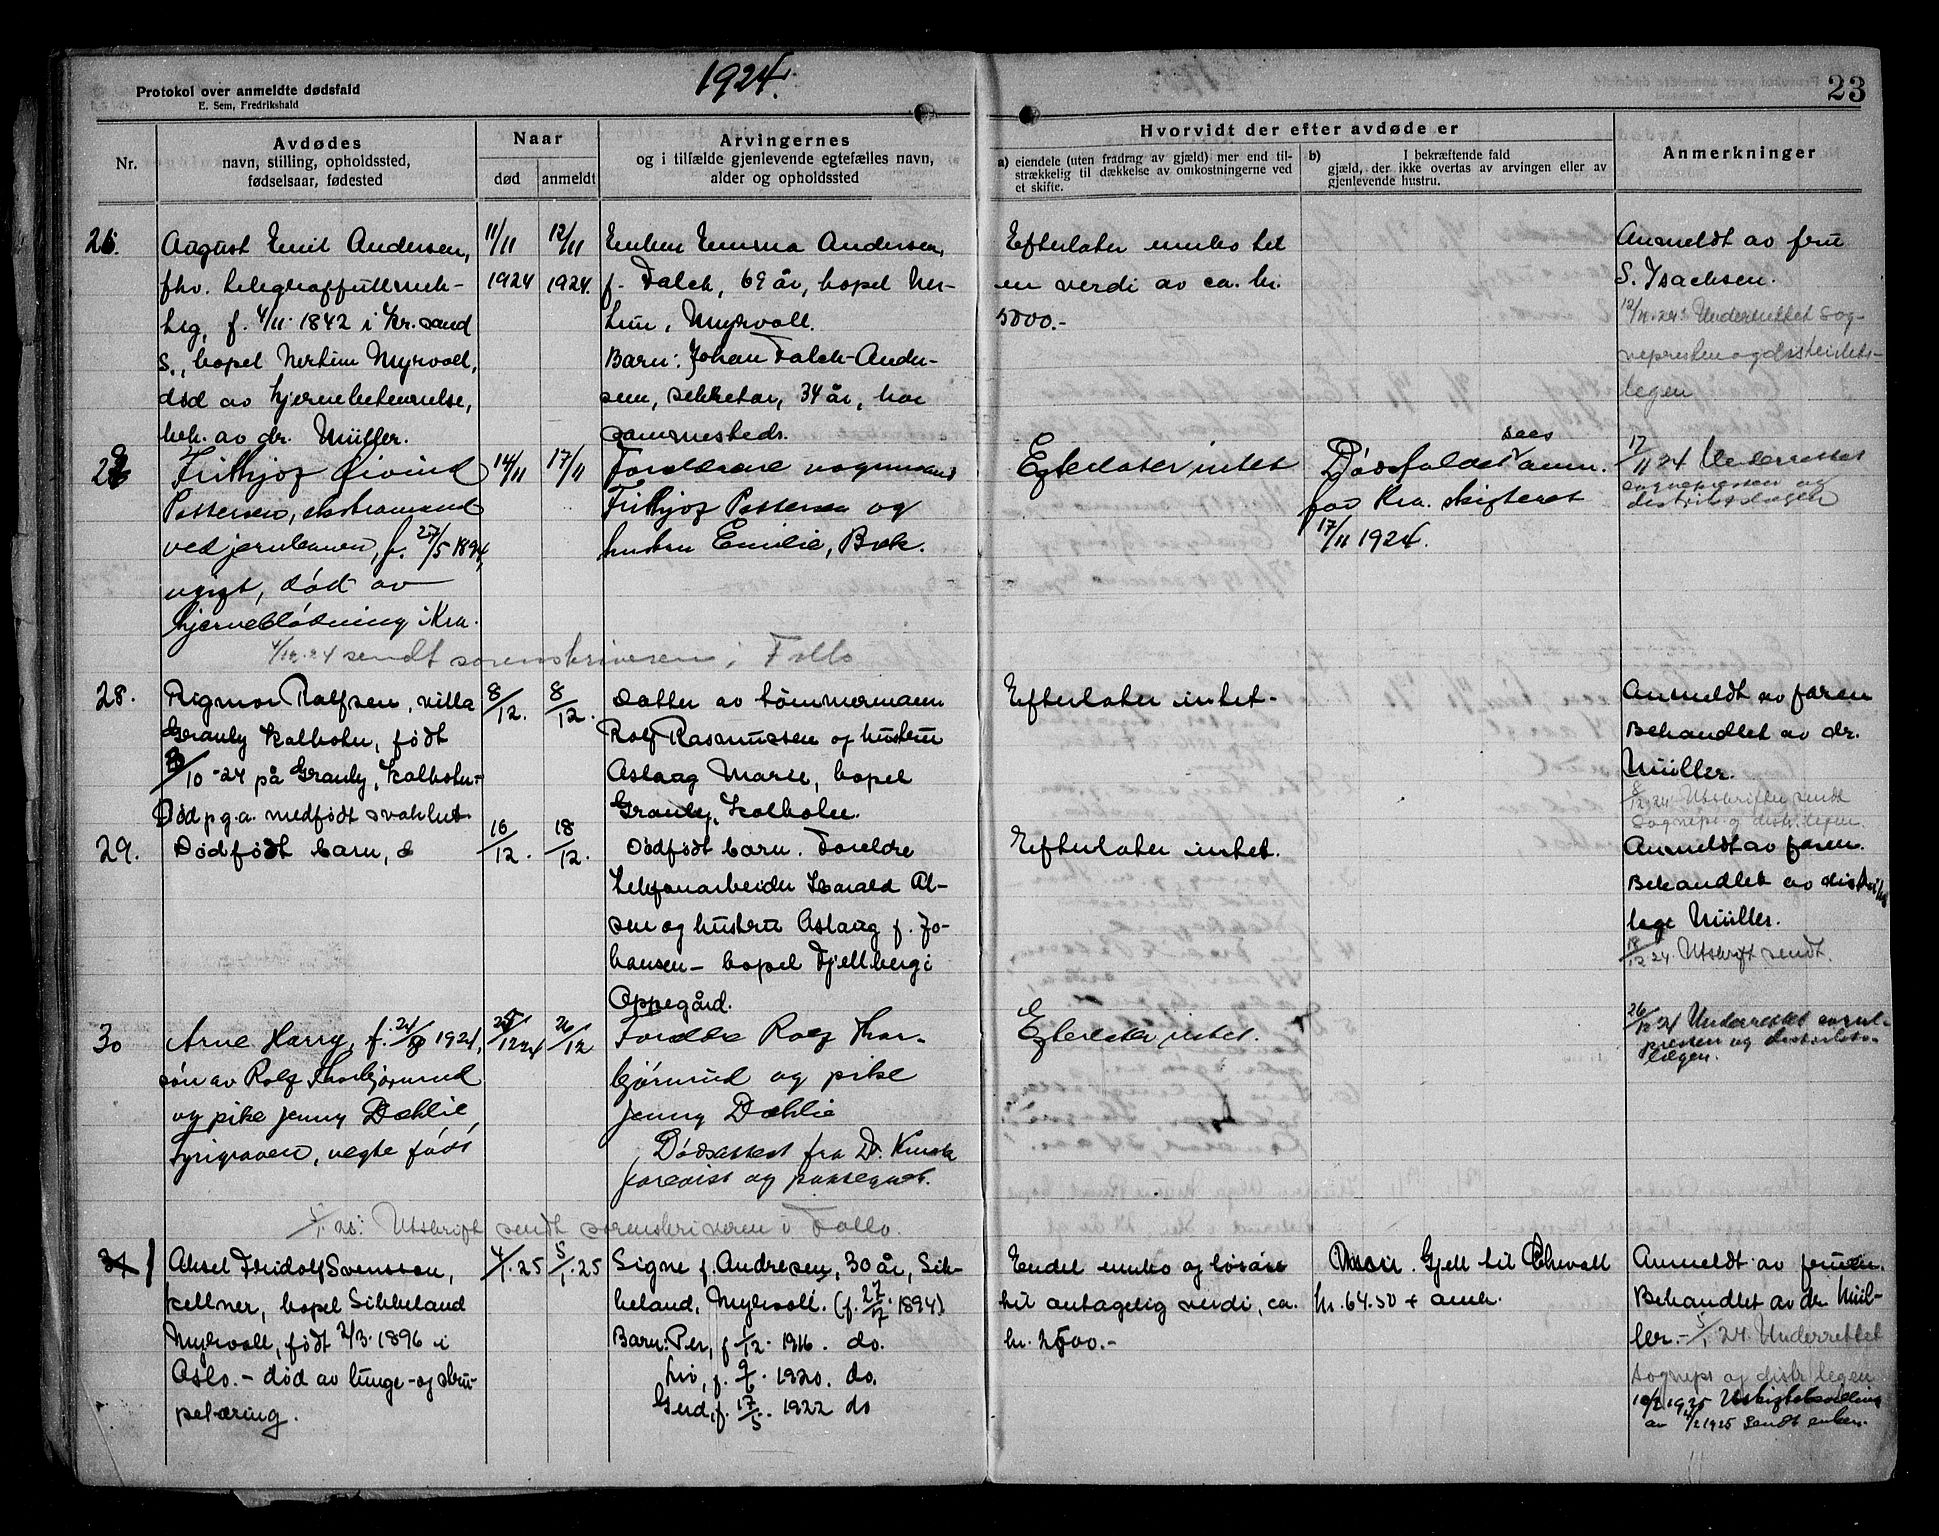 1924.
Protokol over anmeldte dødsfald
E. Sem, Fredrikshald
23
Nr.
Avdødes
navn, stilling, opholdssted,
fødselsaar, fødested
Naar
død
anmeldt
Arvingernes
og i tilfælde gjenlevende egtefælles navn,
alder og opholdssted
Hvorvidt der efter avdøde er
a) eiendele (uten fradrag av gjæld) mer end til-
strækkelig til dækkelse av omkostningerne ved
et skifte.
b) I bekræftende fald
gjæld, der ikke overtas av arvingen eller av
gjenlevende hustru.
Anmerkninger
26.
August Emil Andersen,
fhv. telegraffullmek-
tig, f. 4/11 1842 i Kr.sand
S., bopel Myrvoll,
død av hjernebetennelse,
beh. av dr. Müller.
11/11
1924
12/11
1924.
Enken Emma Andersen,
f. Falck, 69 år, bopel
Myrvoll.
Barn: Johan Falck-Ander-
sen, sekretær, 34 år, bor
sammesteds.
Efterlater innbo til
en verdi av ca. kr.
5000.-
Anmeldt av frue
S. Isachsen.
12/11.24: Underrettet sog-
nepresten og distrikts-
legen
27
Frithjof Øivind
Pettersen, ekstramand
ved jernbanen, f. 27/5 1894,
ugift, død av
hjerneblødning i Kra.
14/11
17/11
Forældrene vognmand
Frithjof Pettersen og
hustru Emilie, Bæk.
Efterlater intet
Dødsfaldet sees anm.
for Kra. skifteret
17/11 1924.
17/11 24 Underrettet
sognepresten og
distriktslægen
4/12.24 sendt sorenskriveren i Follo
28.
Rigmor Rolfsen, villa
Granly Kolbotn, født
3/10-24 på Granly, Kolbotn.-
Død p.g.a. medfødt svakhet.
8/12.
8/12.
Datter av tømmermann
Rolf Rasmussen og hustru
Aslaug Marie, bopel
Granly, Kolbotn.
Efterlater intet.
Anmeldt av faren
Behandlet av dr.
Müller.
8/12 24: Utskrifter sendt
Sognepr. og distr.legen.
29.
Dødfødt barn,
16/12.
18/12.
Dødfødt barn. Foreldre
telefonarbeider Harald Al-
sen og hustru Aslaug f. Jo-
hansen - bopel Fjellberg i
Oppegård.
Efterlater intet.
Anmeldt av faren.
Behandlet av distrikts
lege Müller.
18/12 24. Utskrift sendt.
30
Arne Harry, f. 24/ 1924,
søn av Rolf Thorbjørnrud
og pike Jenny Dæhlie,
Tyrigraven, uegte født
25/12 24
26/12
Foreldre Rolf Thor-
bjørnrud og pike
Jenny Dæhlie
Dødsattest fra Dr.
forevist og paategnet.
Efterlater intet.
26/12 24 Underrettet sogne-
presten og distrikts-
lægen.
5/1 25: Utskrift sendt sorenskriveren i Follo.
31 1
Aksel Fridolf Svensson,
kellner, bopel Sikkeland
Myrvoll, født 2/3 1896 i
Oslo. - død av lunge- og stru-
petæring.
4/1.25
5/1.25
Signe f. Andresen, 30 år, Sik-
keland, Myrvoll. (f. 27/7 1894)
Barn: Per, f. 1/12. 1916. do.
Liv, f. 9/6. 1920. do.
Gerd, f. 17/5. 1922 do
Endel innbo og løsøre
til antagelig verdi, ca.
kr. 2500.-
Gjeld til
kr. 64.50 +
Anmeldt av fruen.
Behandlet av dr Mül-
ler. - 5/1 24. Underrettet
Sognepr og distr legen
10/2 1925
av 4/2 1925 sendt enken.